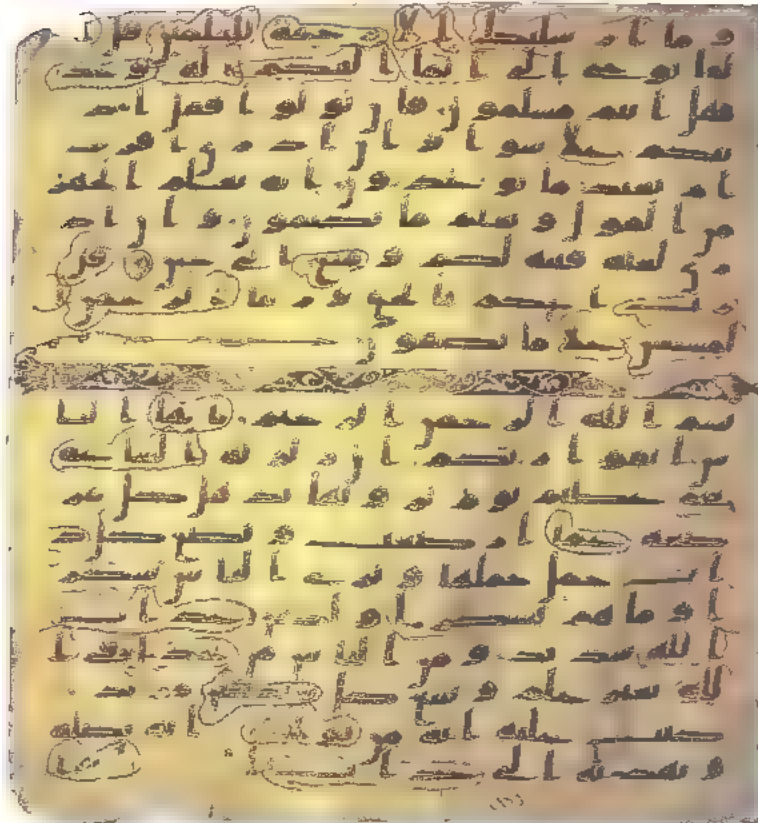 و ما ارسلنك الا رحمة للعلمين قل
انما يوحى الى انما الهكم اله وحد
فهل انتم مسلمون فان تولوا فقل اذ
نتكم على سوا و ان ادرى اقرب
ام بعيد ما توعدون انه يعلم الجهر
من القول و يعلم ما تكتمون و ان اد
رى لعله فتنة لكم و متع الى حين قل
رب احكم بالحق و ربنا الرحمن ا
لمستعن على ما تصفون
بسم الله الرحمن الرحيم يايها النا
س اتقوا ربكم ان زلزلة الساعة
شى عظيم يوم ترونها تذهل كل مر
ضعة عما ارضعت و تضع كل ذ
ات حمل حملها و ترى الناس سكر
ى و ما هم بسكرى و لكن عذاب
الله شديد و من الناس من يجدل في ا
لله بغير علم و يتبع كل شيطن مريد
كتب عليه انه من تولاه فانه يضله
و يهديه الى عذاب السعير